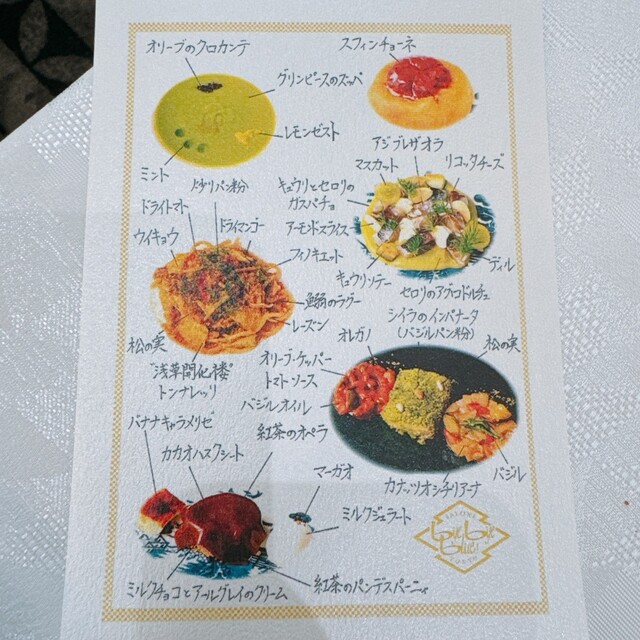 オリーブのクロカンテ
グリンピースのズッパ
レモンゼスト
ミント
スフィンチョーネ
アジブレザオラ
マスカット
リコッタチーズ
キュウリとセロリの
ガスパチョ
アーモンドスライス
キュウリソテー
セロリのアグロドルチェ
ディル
炒りパン粉
ドライトマト
ドライマンゴー
ウイキョウ
フィノキエット
鰯のラグー
レーズン
松の実
"浅草開化楼"
トンナレッリ
シイラのインパナータ
(バジルパン粉)
オレガノ
松の実
オリーブ・ケッパー
トマトソース
バジルオイル
カナッツオシチリアーナ
バジル
バナナキャラメリゼ
紅茶のオペラ
カカオハスクシート
マーガオ
ミルクジェラート
ミルクチョコとアールグレイのクリーム
紅茶のパンデスパーニャ